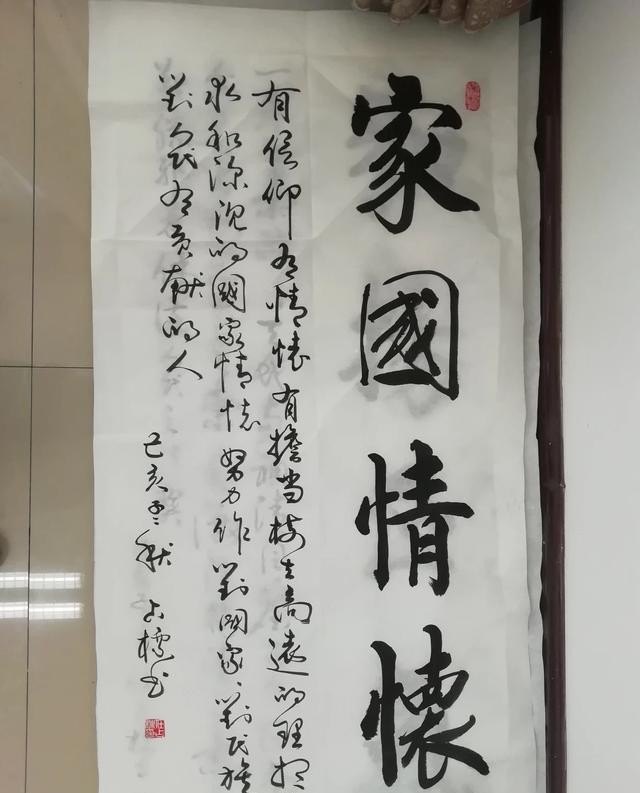 家國情懷
有信仰有情懷有擔当樹立高遠的理想
求和深沉的國家情懷努力作對國家對民族
對人民有贡献的人
己亥孟秋 书